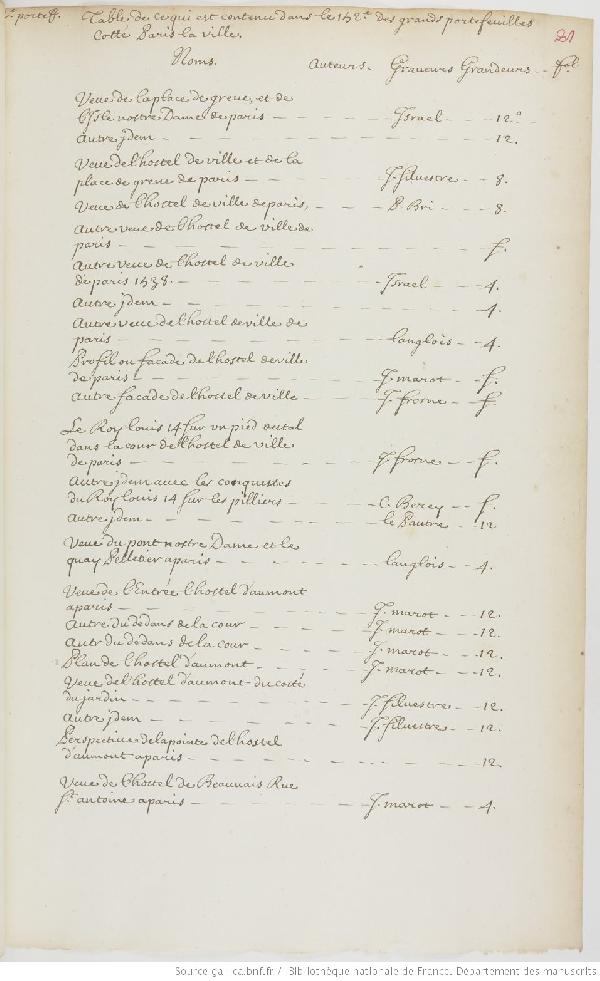 2e porteff. Table de ce qui est contenu dans le 152e des grands portefeuilles
Cotte Paris la ville. 21
Noms. Auteurs. Graveurs Grandeurs fol.
Veue de la place de greve, et de
l'Isle nostre Dame de paris - Israel - 12.°
Autre jdem - 12.
Veue de l'hostel de ville et de la
place de greve de paris - J. silvestre - 8.
Veue de l'hostel de ville de paris - P. Bri - 8.
Autre veue de l'hostel de ville de
paris - f.
Autre veue de l'hostel de ville
de paris 1538. - Israel - 4.
Autre jdem - 4.
Autre veue de l'hostel de ville de
paris - langlois - 4.
Profil ou facade de l'hostel de ville
de paris - J. marot - f.
Autre facade de l'hostel de ville - J. frosne - f.
Le Roy louis 14 sur un pied destal
dans la cour de l'hostel de ville
de paris - J. frosne - f.
Autre jdem avec les conquestes
du Roy louis 14 sur les pilliers - C. Berey - f.
Autre jdem - le Pautre - 12
Veue du pont nostre Dame et le
quay Pelletier a paris - langlois - 4.
Veue de l'Entrée l'hostel d'aumont
a paris - J. marot - 12.
Autre du dedans de la cour - J. marot - 12.
Autr du dedans de la cour - J. marot - 12.
Plan de l'hostel d'aumont - J. marot - 12.
Veue de l'hostel d'aumont du costé
du jardin - J. silvestre - 12.
Autre jdem - J. silvestre - 12.
Perspective de la pointe de l'hostel
d'aumont a paris - 12.
Veue de l'hostel de Beauvais Rue
st. antoine a paris - J. marot - 4.
Source gallica.bnf.fr / Bibliothèque nationale de France. Département des manuscrits.